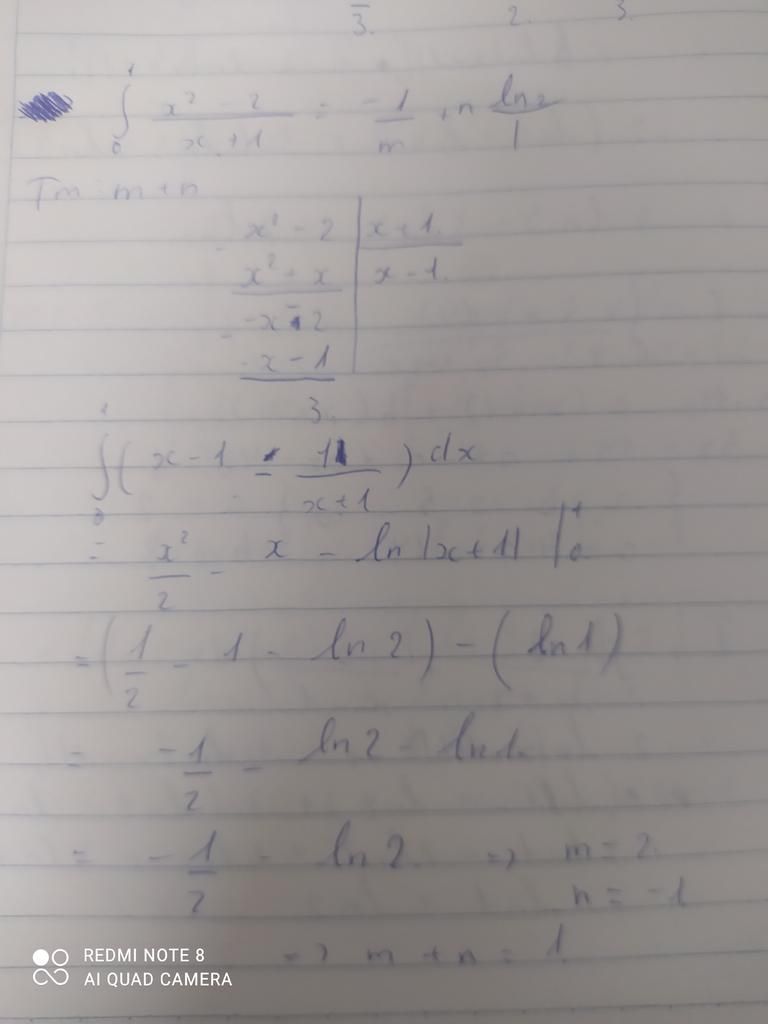 3. 2. 3.
∫₀¹ x² - 2 / x + 1 = -1 / m + n ln2 / 1
Tm: m + n
x² - 2 | x + 1.
x² - x | x - 1.
-x - 2
-x - 1
3.
∫₀¹ ( x - 1 - 1 / x + 1 ) dx
= x² / 2 - x - ln |x + 1| |₀¹
= ( 1 / 2 - 1 - ln 2 ) - ( ln 1 )
= -1 / 2 - ln 2 - ln 1.
= - 1 / 2 - ln 2. => m = 2.
n = -1
=> m + n = 1.
REDMI NOTE 8
AI QUAD CAMERA